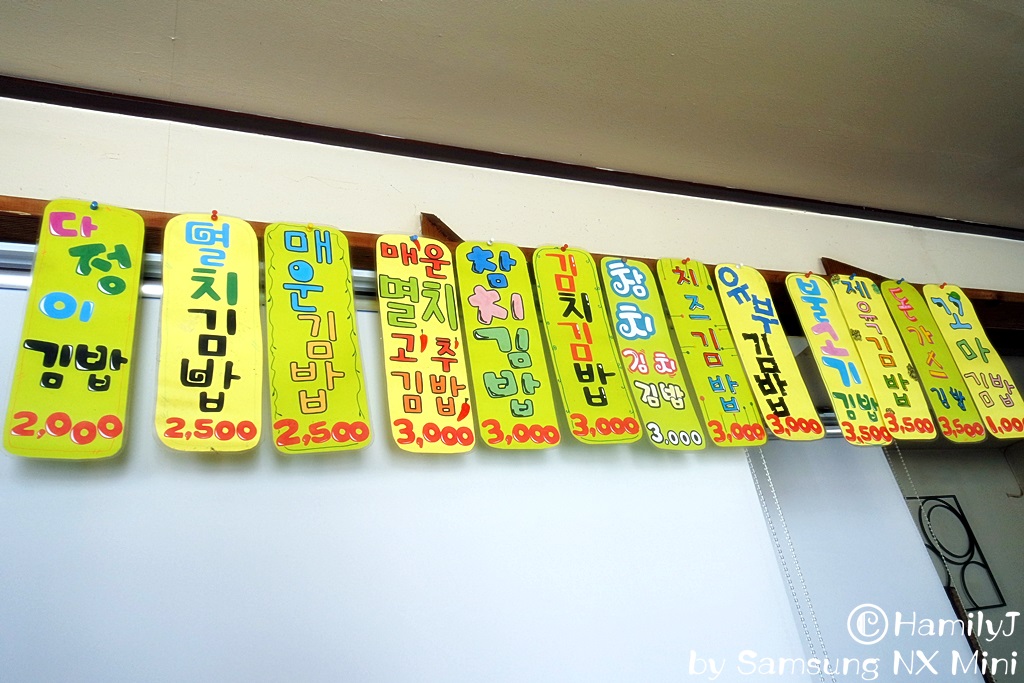 다정
이
김밥
2,000
멸치김밥
2,500
매운김밥
2,500
매운
멸치
고추
김밥
3,000
참치김밥
3,000
김치김밥
3,000
참치
김치
김밥
3,000
치즈김밥
3,000
유부김밥
3,000
불고기
김밥
3,500
제육김밥
3,500
돈가스
김밥
3,500
꼬마
김밥
1,000
©HamilyJ
by Samsung NX Mini